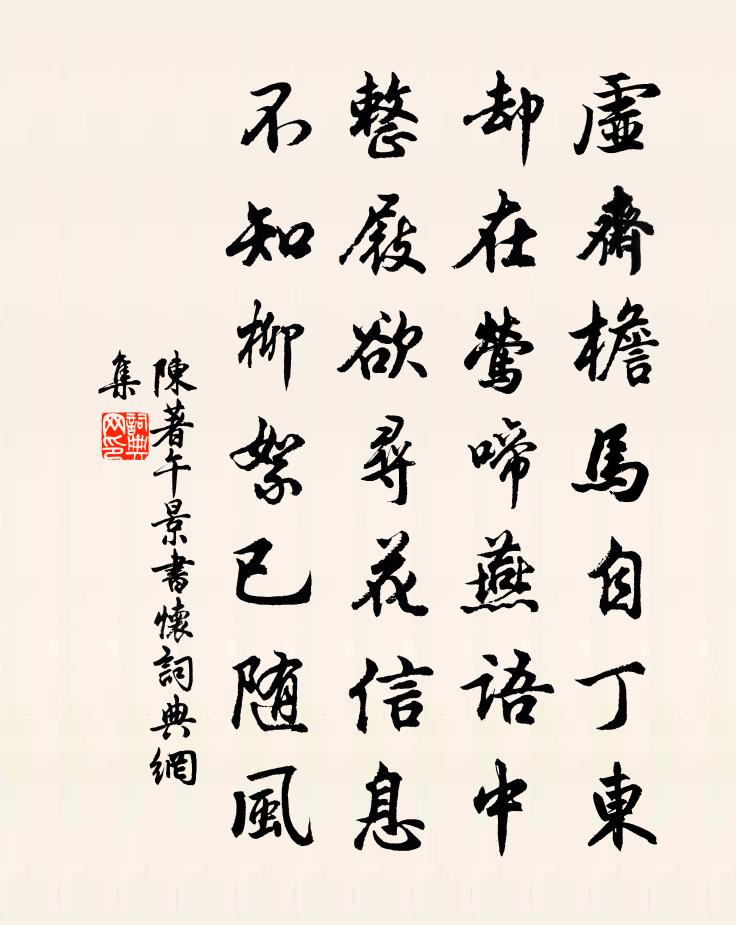 虛齋檐馬自丁東
却在鶯啼燕語中
整屐欲尋花信息
不知柳絮已随風
陳著午景書懷詞典網
集
詞典網印